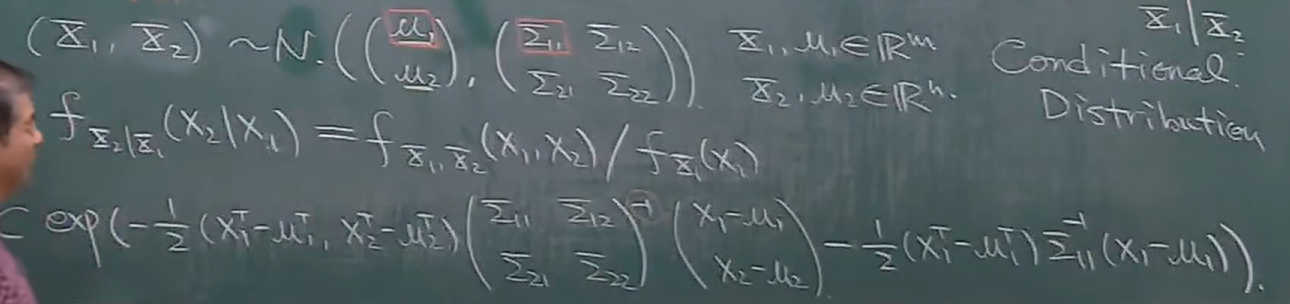 (X̄₁, X̄₂) ~ N.((μ₁ μ₂), (Σ₁₁ Σ₁₂ Σ₂₁ Σ₂₂)). X̄₁, μ₁ ∈ ℝᵐ X̄₂, μ₂ ∈ ℝⁿ.
X̄₁|X̄₂
Conditional.
Distribution
f_{X̄₂|X̄₁}(x₂|x₁) = f_{X̄₁, X̄₂}(x₁, x₂) / f_{X̄₁}(x₁)
C exp(-1/2 (x₁ᵀ-μ₁ᵀ, x₂ᵀ-μ₂ᵀ) (Σ₁₁ Σ₁₂ Σ₂₁ Σ₂₂)⁻¹ (x₁-μ₁ x₂-μ₂) - 1/2 (x₁ᵀ-μ₁ᵀ) Σ₁₁⁻¹ (x₁-μ₁)).